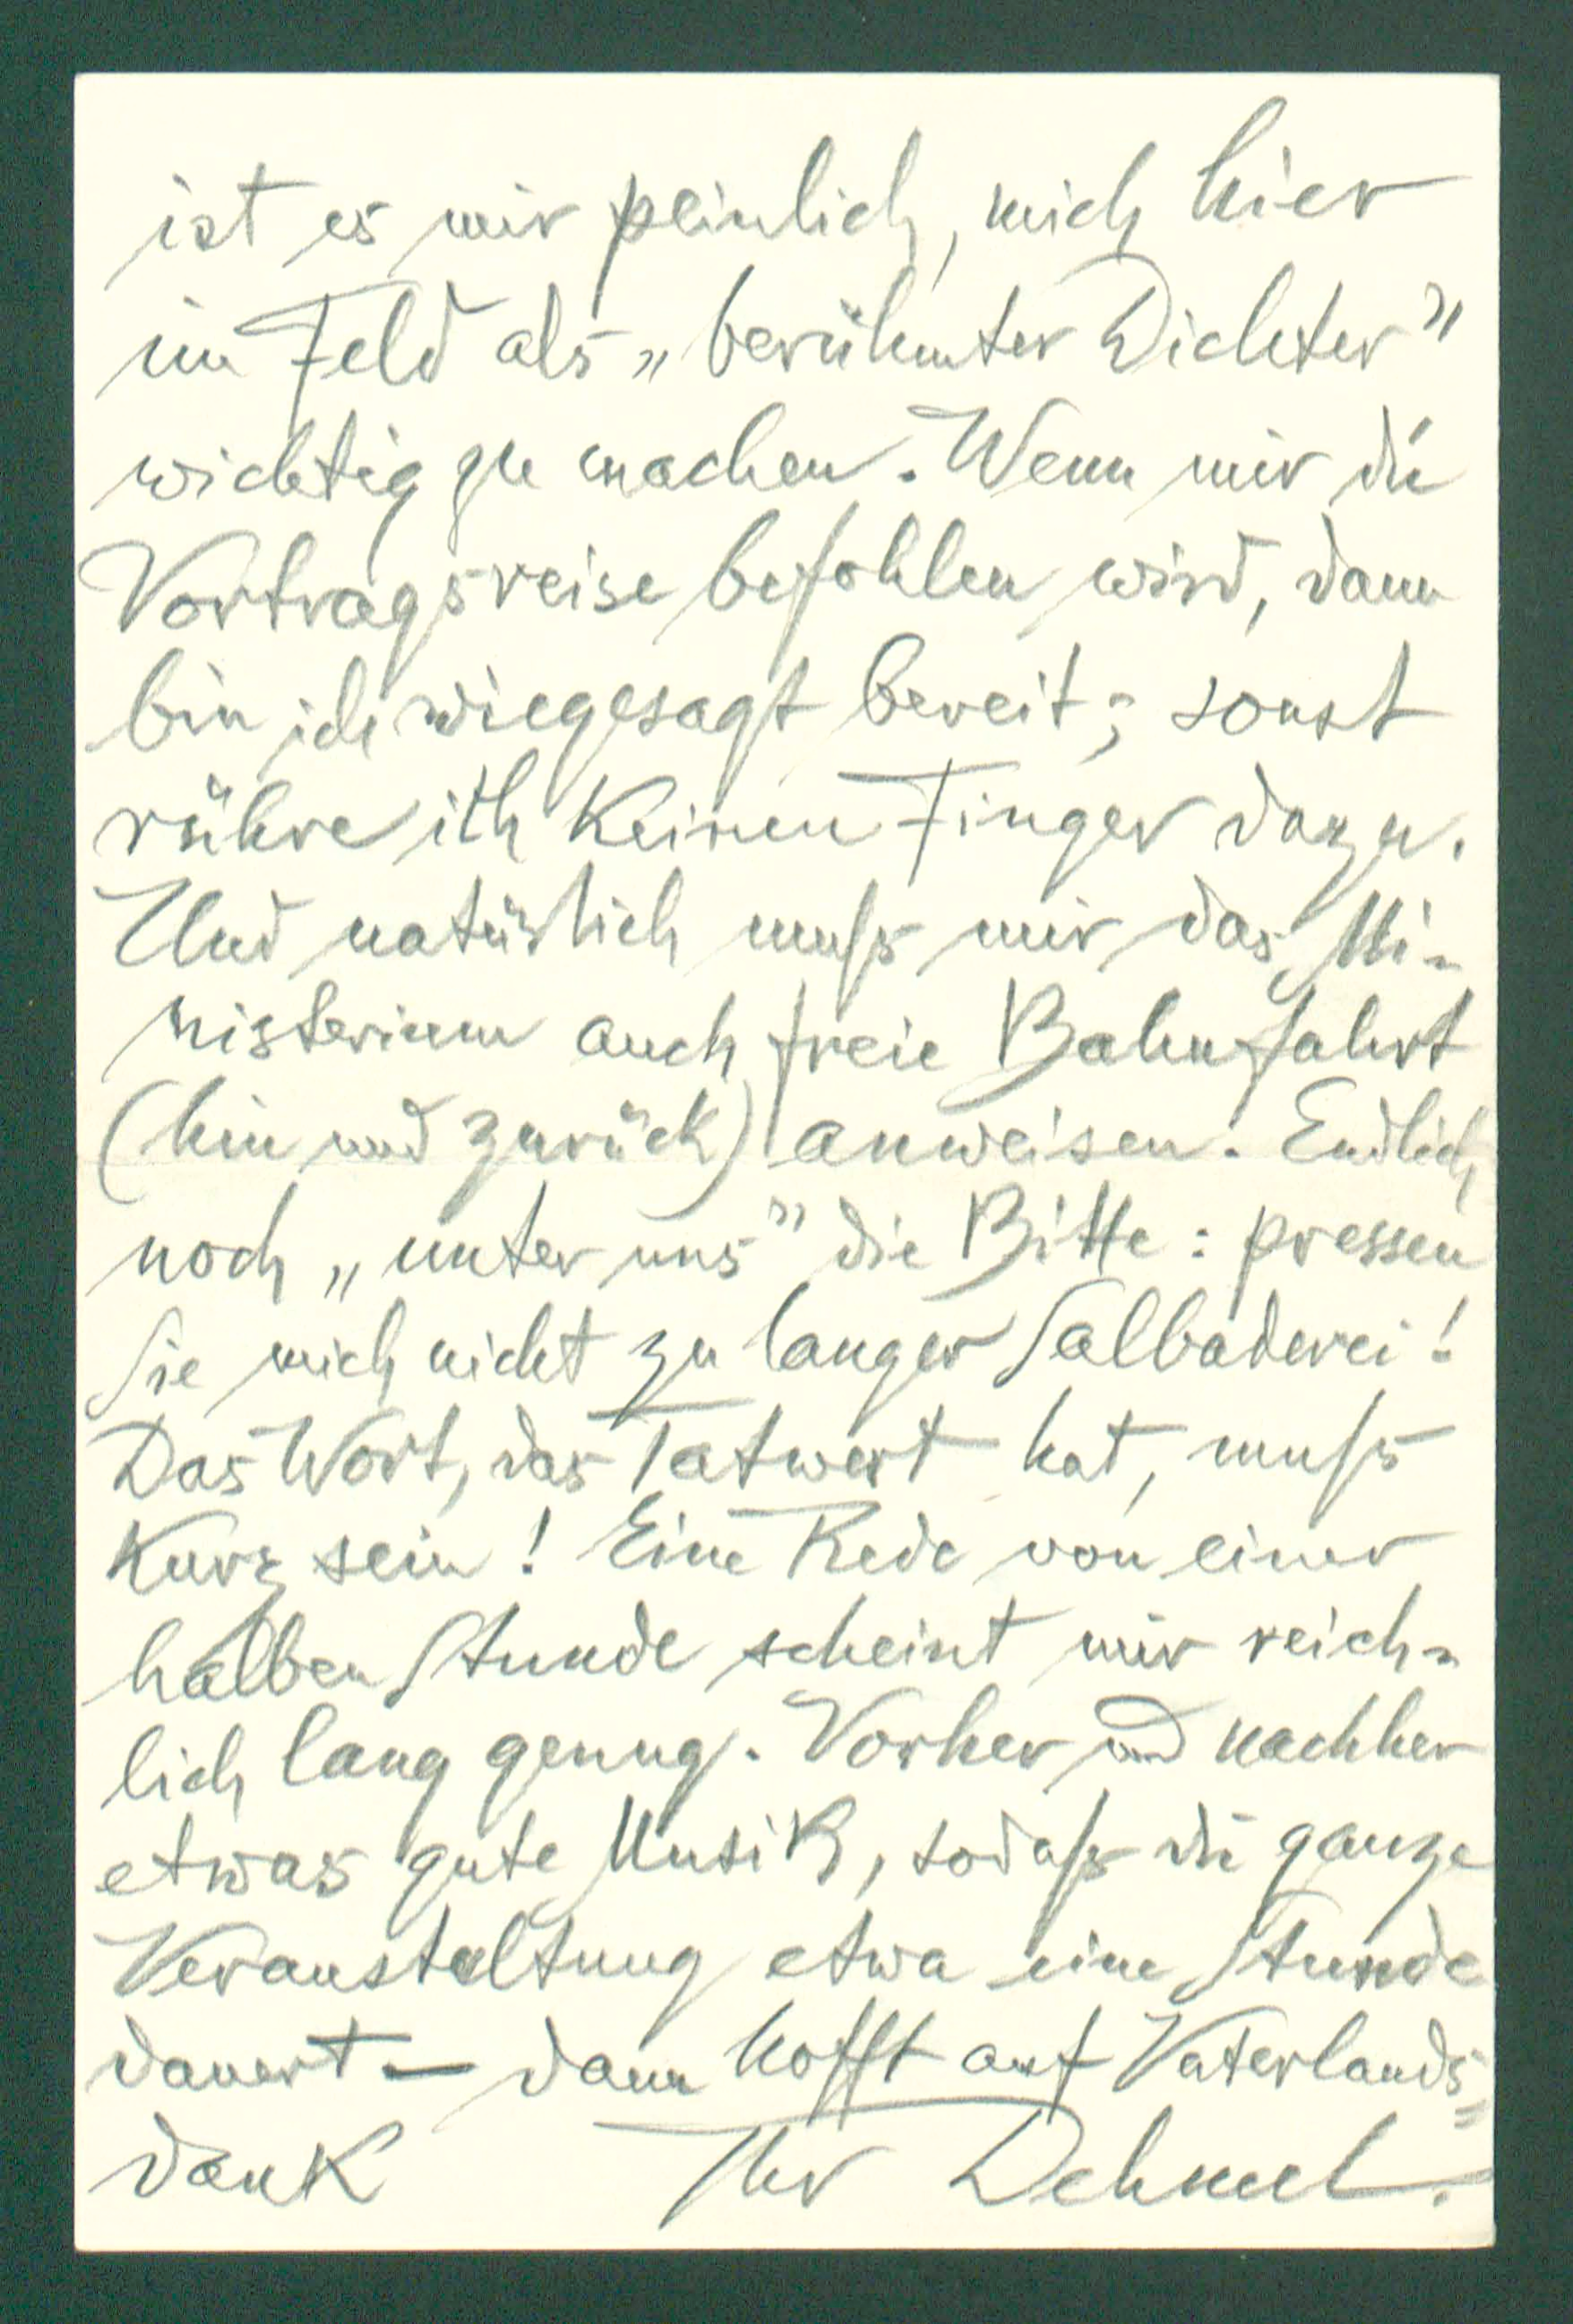 ist es mir peinlich, mich hier
im Feld als „berühmter Dichter”
wichtig zu machen. Wenn mir die
Vortragsreise befohlen wird, dann
bin ich wiegesagt bereit; sonst
rühre ich keinen Finger dazu.
Und natürlich muſs mir das Mi-
nisterium auch freie Bahnfahrt
(hin und zurück) anweisen. Endlich
noch „unter uns” die Bitte: pressen
Sie mich nicht zu langer Salbaderei!
Das Wort, das Tatwert hat, muſs
kurz sein! Eine Rede von einer
halben Stunde scheint mir reich-
lich lang genug. Vorher und nachher
etwas gute Musik, sodaſs die ganze
Veranstaltung etwa eine Stunde
dauert — dann hofft auf Vaterlands=
dank Ihr Dehmel.